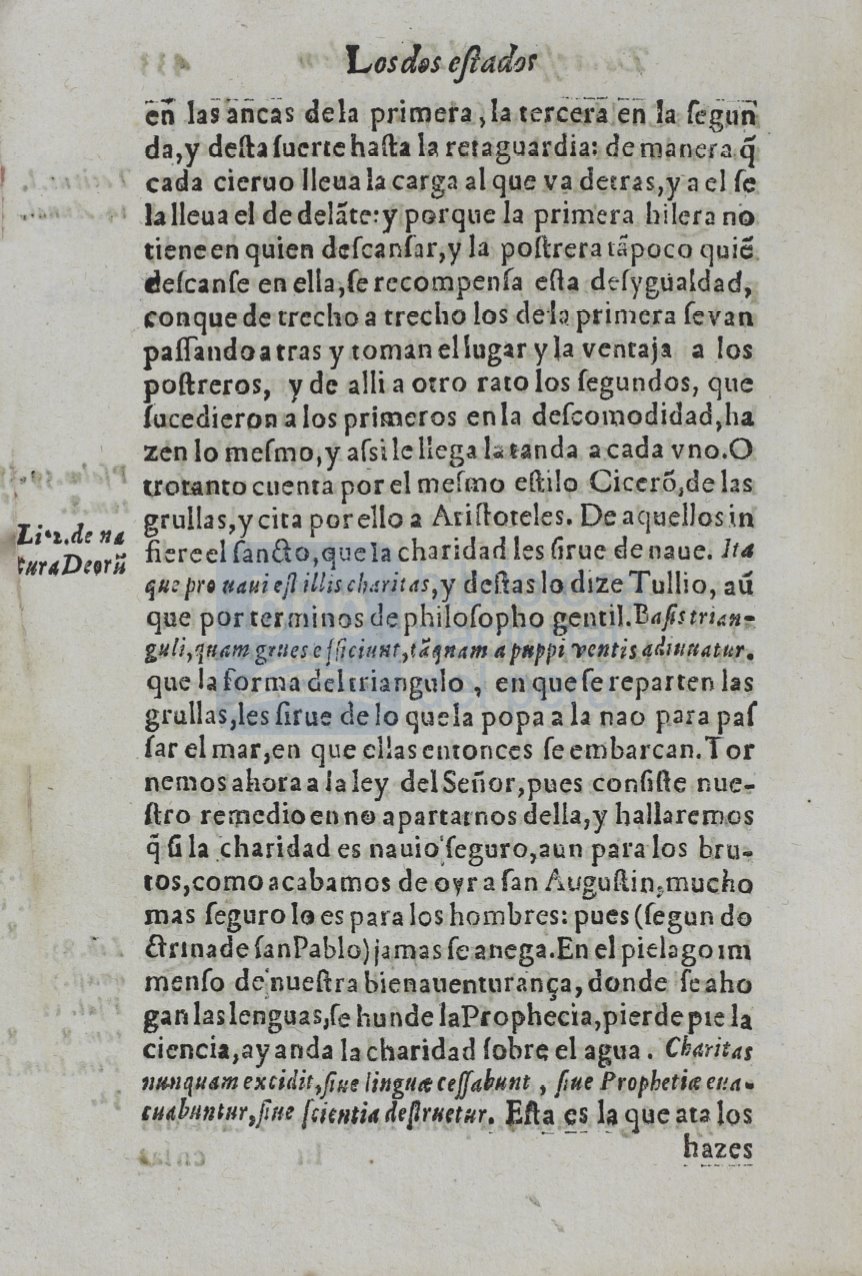 Los dos eſtados
en las ancas dela primera, la tercera en la ſegun
da, y deſta ſuerte haſta la retaguardia: de manera q̃
cada cieruo lleua la carga al que va detras, y a el ſe
la lleua el de delãte: y porque la primera hilera no
tiene en quien deſcanſar, y la poſtrera tãpoco quiẽ
deſcanſe en ella, ſe recompenſa eſta deſygualdad,
con que de trecho a trecho los dela primera ſe van
paſſando atras y toman el lugar y la ventaja a los
poſtreros, y de alli a otro rato los ſegundos, que
ſucedieron a los primeros enla deſcomodidad, ha
zen lo meſmo, y aſsi le llega la tanda a cada vno. O
tro tanto cuenta por el meſmo eſtilo Cicerõ, de las
grullas, y cita por ello a Ariſtoteles. De aquellos in
Li. 2. de na
tura Deorũ
fiere el ſancto, que la charidad les ſirue de naue. Ita
que pro naui eſt illis charitas, y deſtas lo dize Tullio, aũ
que por terminos de philoſopho gentil. Baſis trian-
guli, quam grues efficiunt, tãquam a puppi ventis adiuuatur.
que la forma del triangulo, en que ſe reparten las
grullas, les ſirue de lo que la popa a la nao para paſ
ſar el mar, en que ellas entonces ſe embarcan. Tor
nemos ahora a la ley del Señor, pues conſiſte nue-
ſtro remedio en no apartarnos della, y hallaremos
q̃ ſi la charidad es nauio ſeguro, aun para los bru-
tos, como acabamos de oyr a ſan Auguſtin, mucho
mas ſeguro lo es para los hombres: pues (ſegun do
ctrina de ſan Pablo) jamas ſe anega. En el pielago im
menſo de nueſtra bienauenturança, donde ſe aho
gan las lenguas, ſe hunde la Prophecia, pierde pie la
ciencia, ay anda la charidad ſobre el agua. Charitas
nunquam excidit, ſiue linguæ ceſſabunt, ſiue Prophetiæ eua-
cuabuntur, ſiue ſcientia deſtruetur. Eſta es la que ata los
hazes